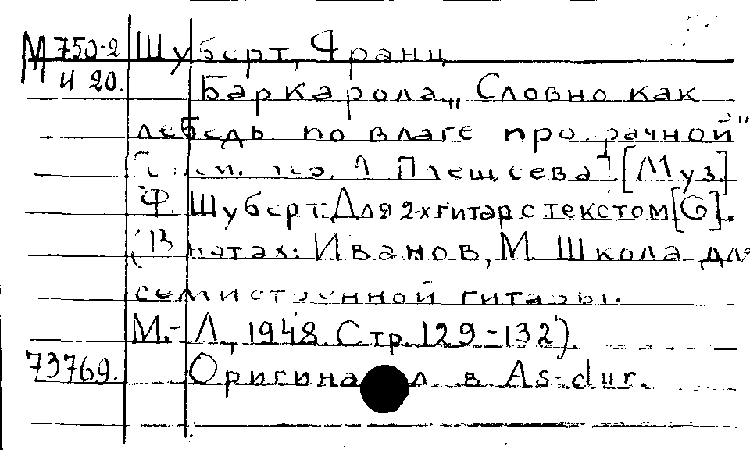 М 750-2 Шуберт, Франц
И 20.
Баркарола „Словно как
лебедь по влаге прозрачной"
Плещеева] [Муз.]
Ф. Шуберт. Для 2-х гитар с текстом [G].
(В нотах: Иванов, М. Школа для
семиструнной гитары.
М.-Л., 1948. Стр. 129-132).
73769. Оригинал в As-dur.